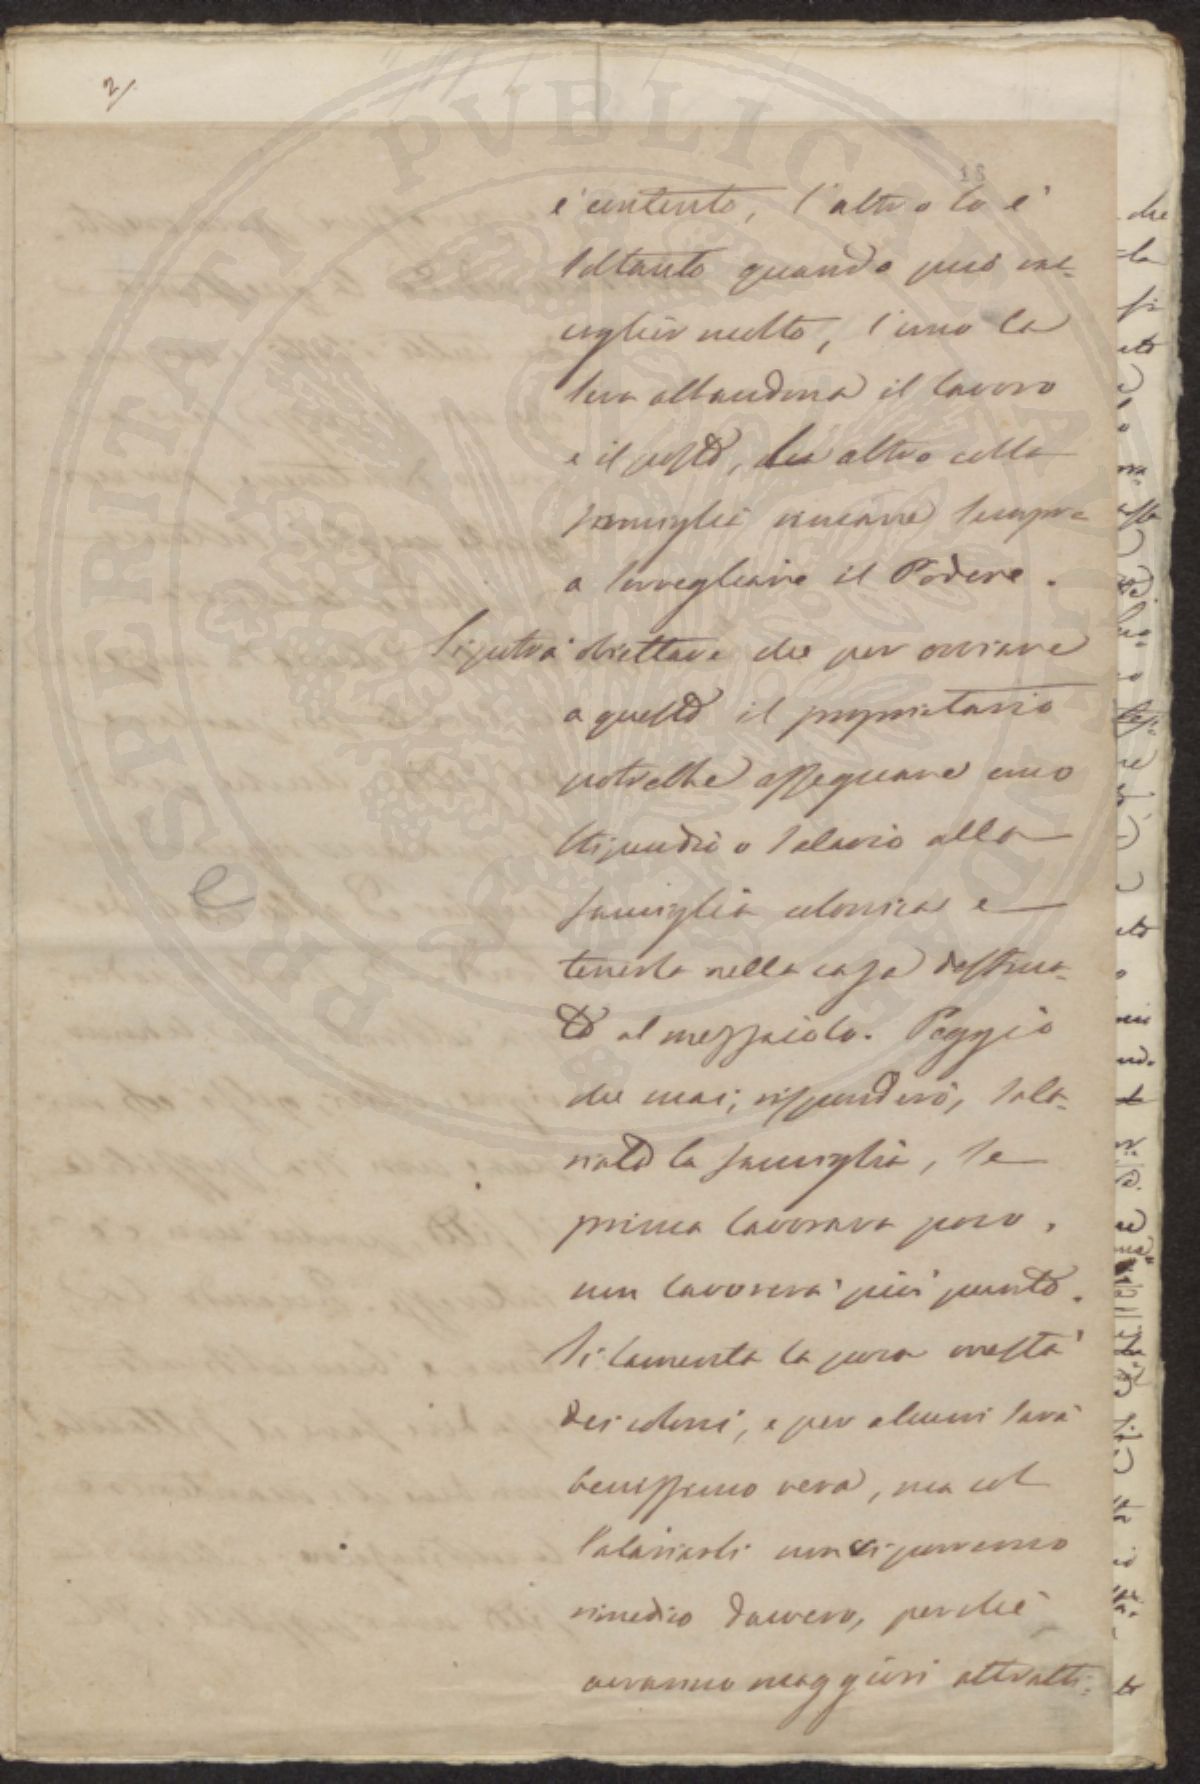 2/
18
è contento, l'altro lo è
soltanto quando può rac-
coglier molto, l'uno la
sera abbandona il lavoro
e il posto, l'altro colla
famiglia rimane sempre
a sorvegliare il Podere.
Si potrà obiettare che per ovviare
a questo il proprietario
potrebbe assegnare uno
stipendio o salario alla
famiglia colonica e
tenerla nella casa destina-
ta al mezzaiolo. Peggio
che mai, risponderò, sala-
riata la famiglia, se
prima lavorava poco,
non lavorerà più punto.
Si lamenta la poca onestà
dei coloni, e per alcuni sarà
benissimo vero, ma col
salariarli non ci porremo
rimedio davvero, perché
avranno maggiori attratti-
PROSPERITATI PVBLICAE AVGENDAE